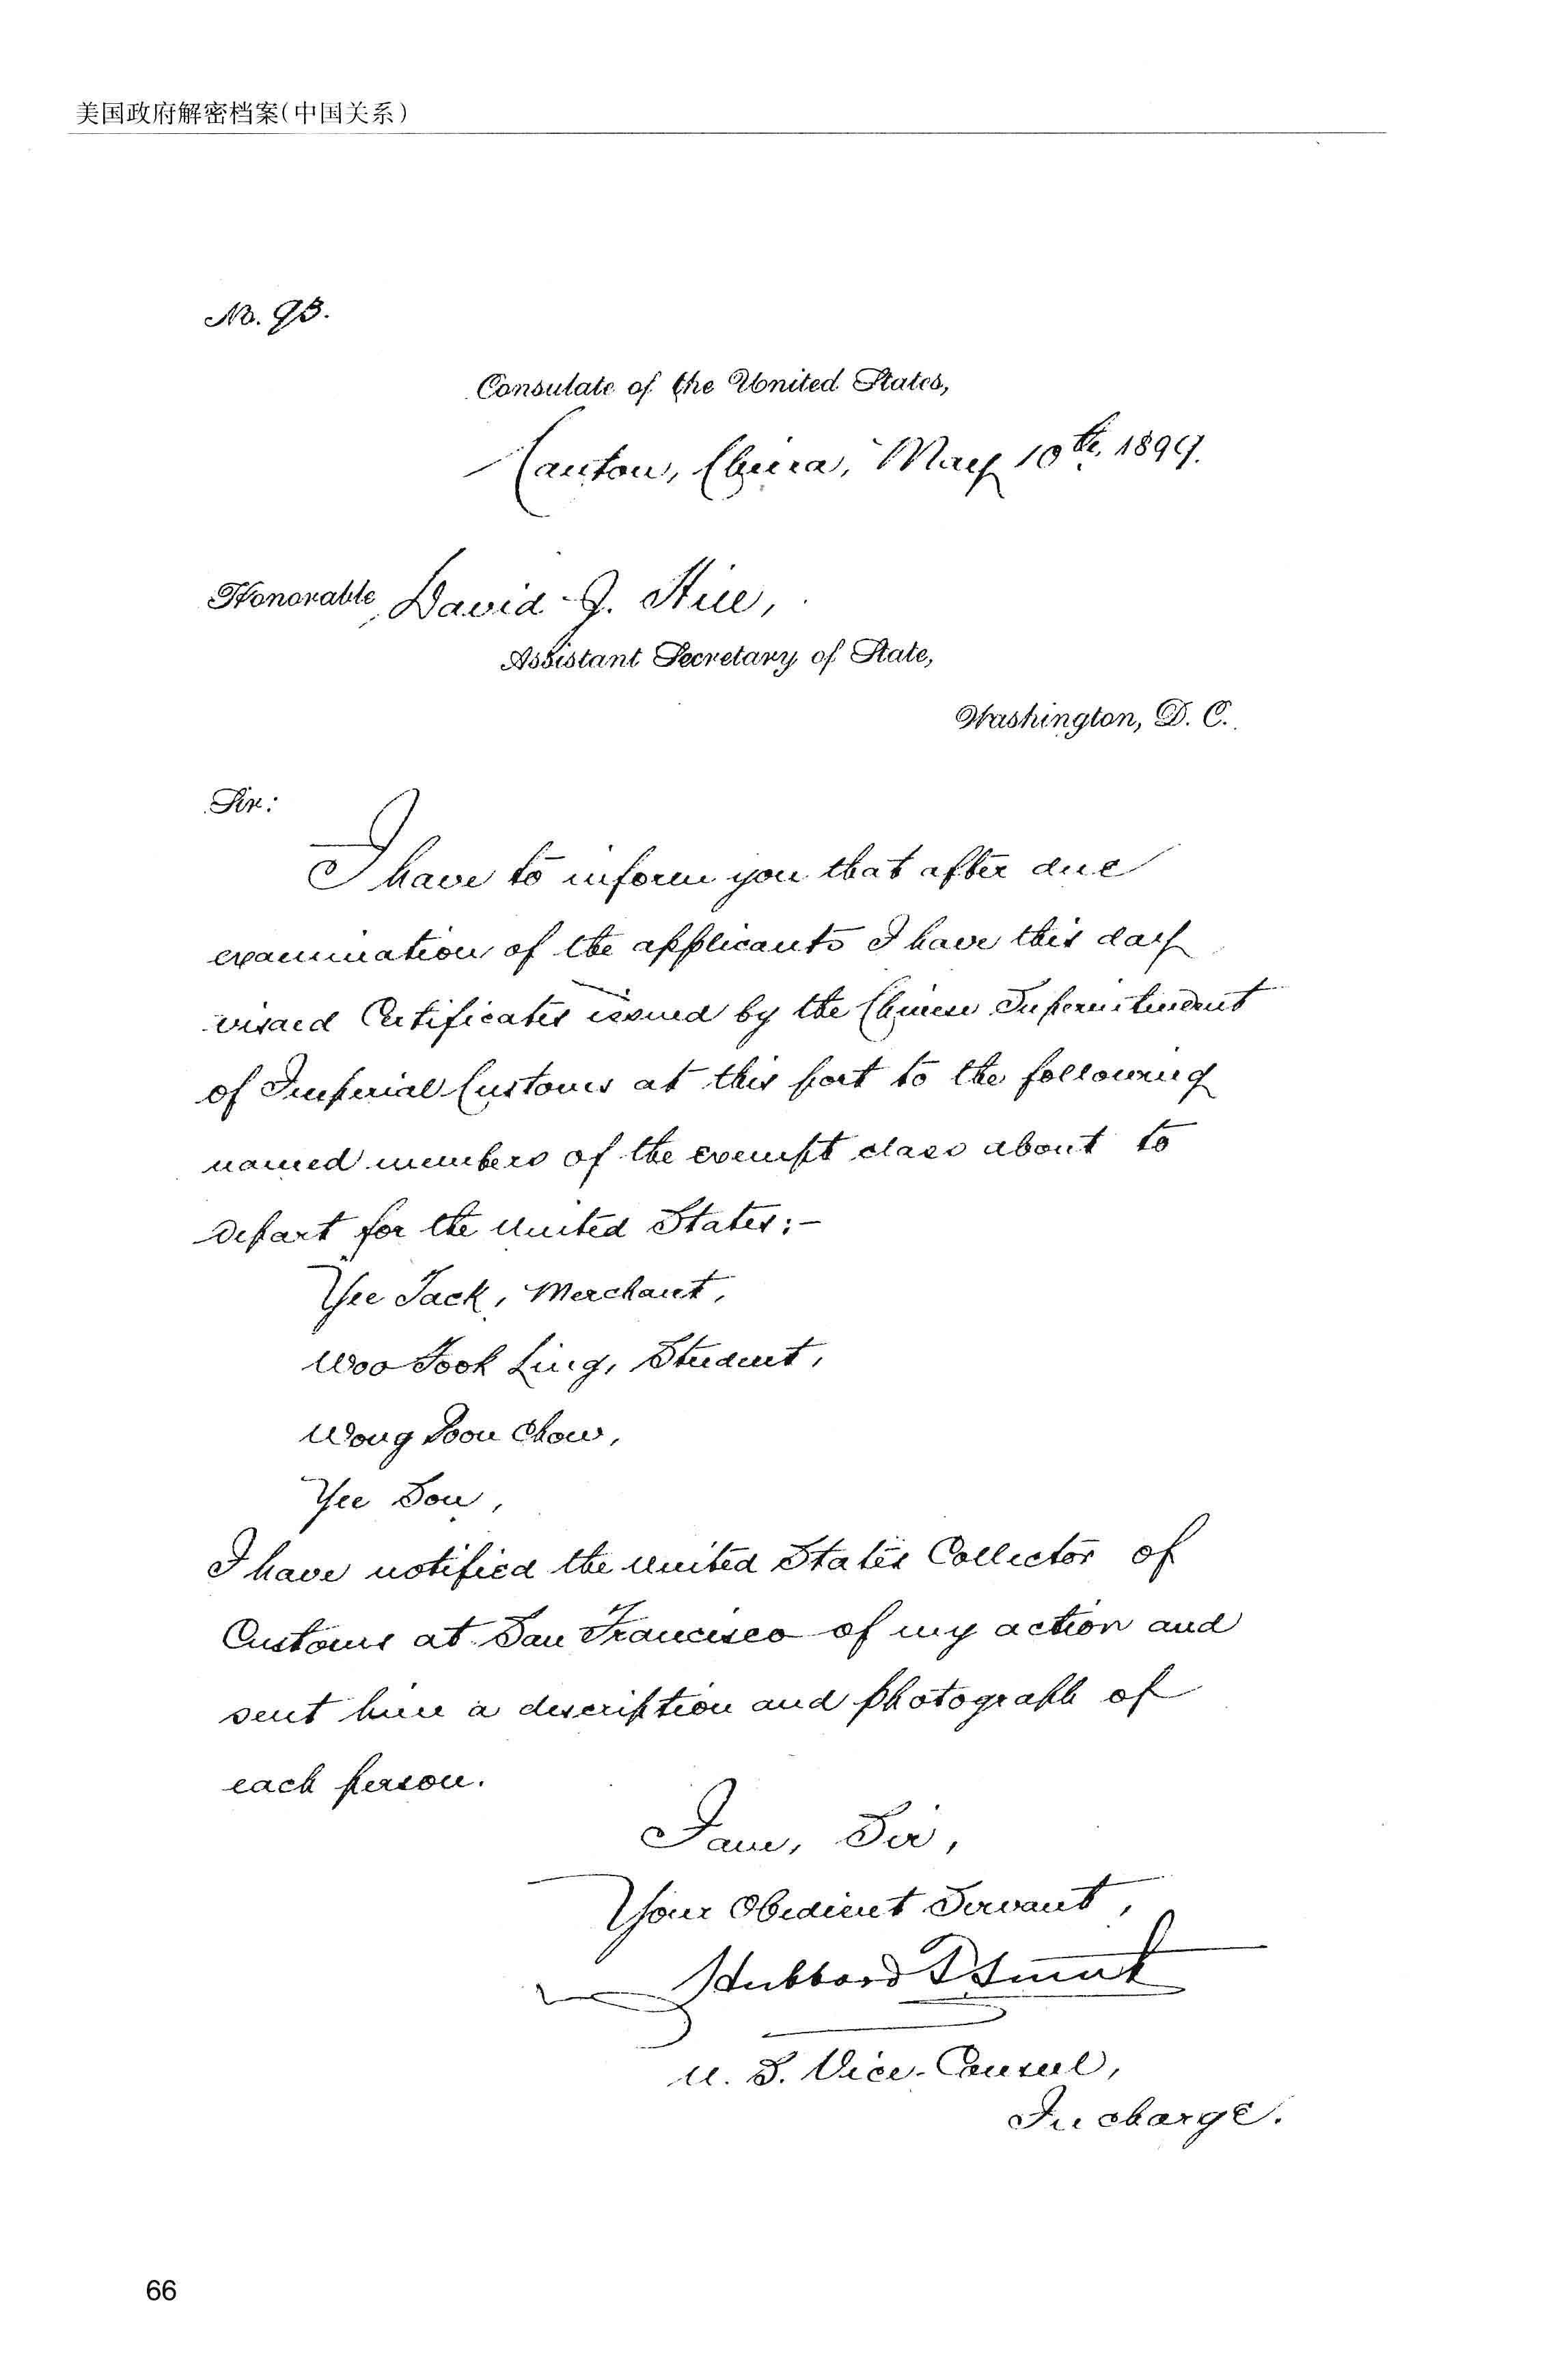 美国政府解密档案(中国关系)
No. 93.
Consulate of the United States,
Canton, China, May 10th, 1899.
Honorable David J. Hill,
Assistant Secretary of State,
Washington, D. C.
Sir:
I have to inform you that after due
examination of the applicants I have this day
visaed Certificates issued by the Chinese Superintendent
of Imperial Customs at this port to the following
named members of the exempt class about to
depart for the United States:-
Yee Jack, Merchant,
Woo Took Ling, Student,
Wong Soon Chow,
Yee Son,
I have notified the United States Collector of
Customs at San Francisco of my action and
sent him a description and photograph of
each person.
I am, Sir,
Your Obedient Servant,
Hubbard T. Smith
U. S. Vice-Consul,
In charge.
66